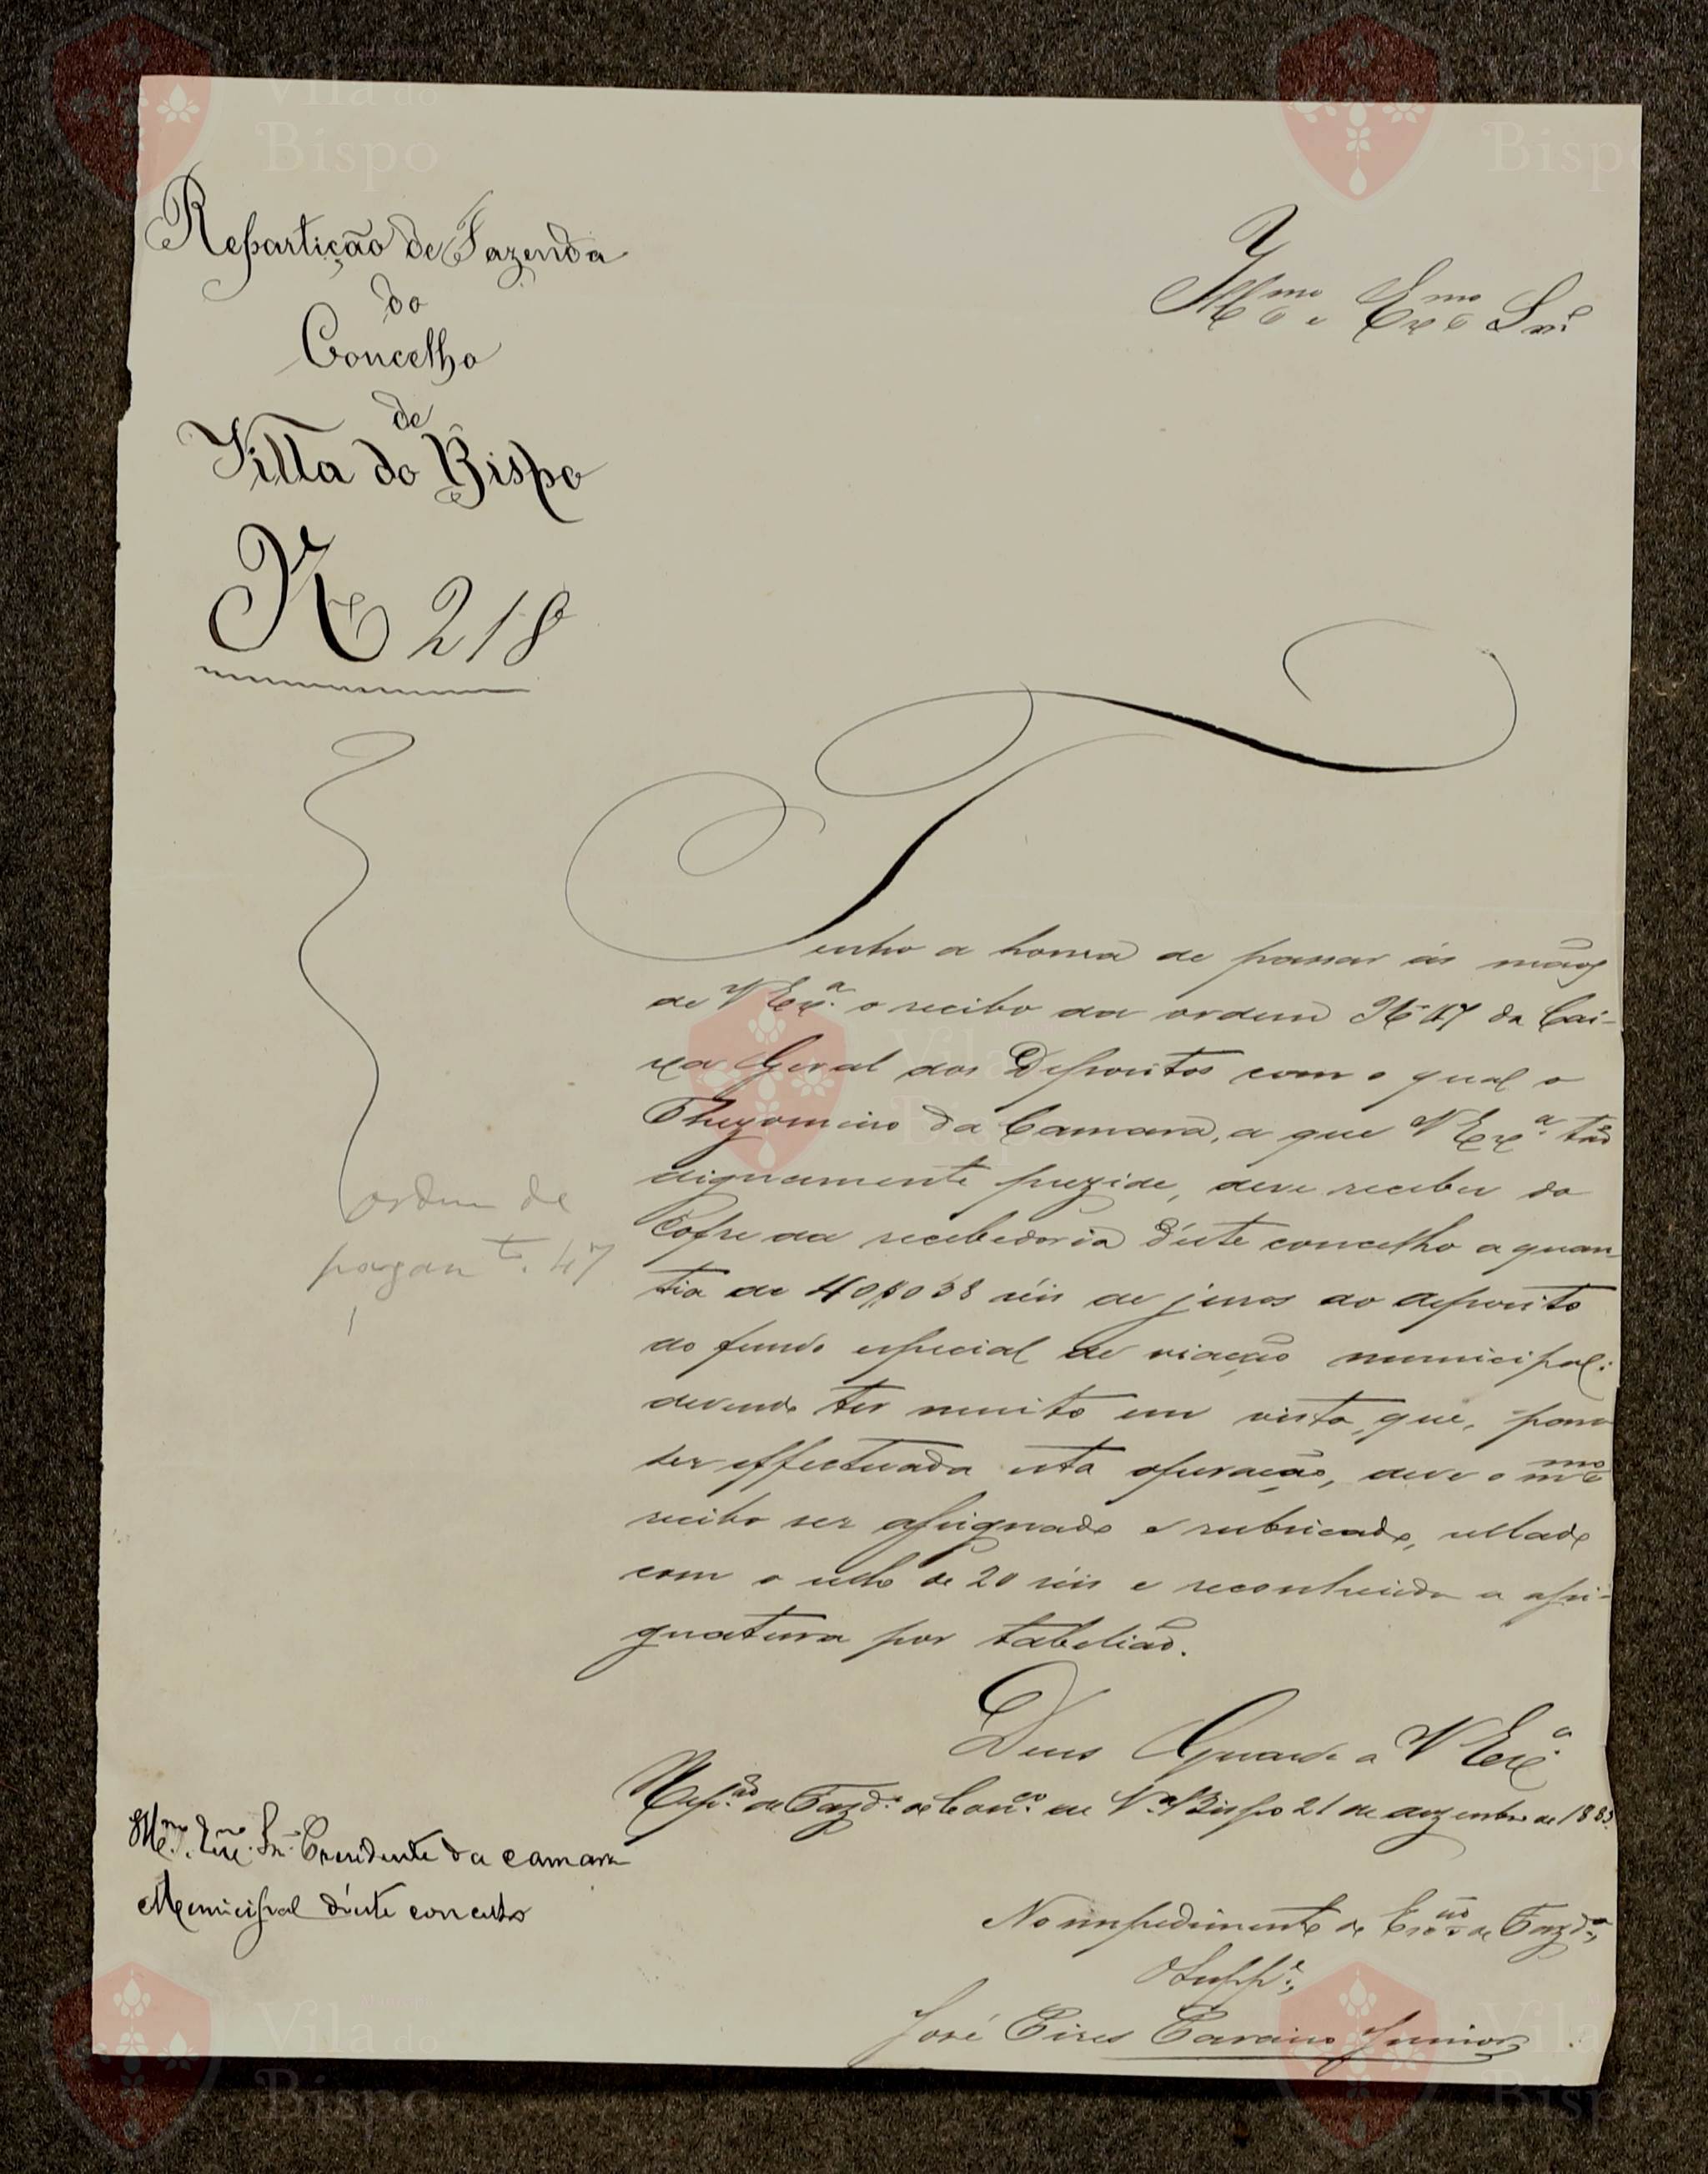 Repartição de Fazenda
do
Concelho
de
Villa do Bispo
Nº 218
Illmo e Exmo Snr
Tenho a honra de passar ás mãos
de V Exª o recibo da ordem Nº 47 da Cai-
xa Geral dos Depositos com o qual o
Thezoureiro da Camara, a que V Exª tão
dignamente prezide, deve receber do
Cofre da recebedoria d'este concelho a quan
tia de 40$038 réis de juros do deposito
do fundo especial de viação municipal:
devendo ter muito em vista, que, para
ser effectuada esta operação, deve o mmo
recibo ser assignado e rubricado, sellado
com o sello de 20 réis e reconhecida a assi-
gnatura por tabelião.
ordem de
pagamto 47
Deus Guarde a V Exª
Repam de Fazdª do Concº de Vª do Bispo 21 de dezembro de 1883.
Illmo. Exmo. Snr. Presidente da camara
Municipal d'este concelho
No impedimento do Escam de Fazdª,
O Suppe,
José Pires Correia Junior
Vila do
Bispo
Bispo
Vila do
Bispo
Vila do
Bispo
Vila
Bispo